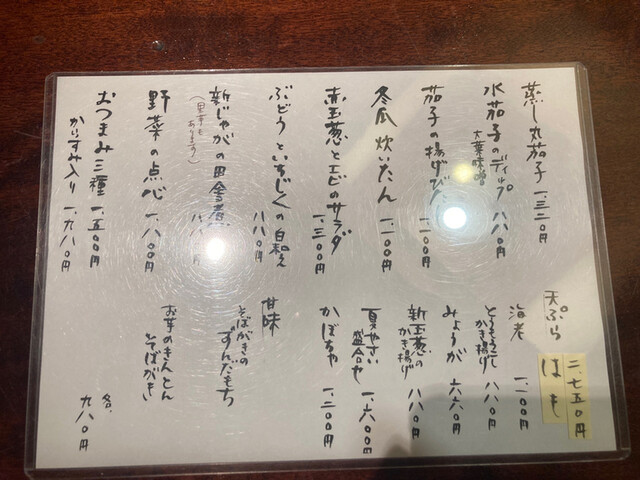 蒸し丸茄子 一、三二〇円
水茄子のディップ 八八〇円
大葉味噌
茄子の揚げびたし 一、一〇〇円
冬瓜炊いたん 一、一〇〇円
赤玉葱とエビのサラダ 一、三〇〇円
ぶどうといちじくの白和え 八八〇円
新じゃがの田舎煮 八八〇円
(里芋もあります)
野菜の点心 一、一八〇円
おつまみ三種 一、五〇〇円
からすみ入り 一、九八〇円
天ぷら
はも
二、七五〇円
海老 一、一〇〇円
とうもろこし
かき揚げ 八八〇円
みょうが 六六〇円
新玉葱の
かき揚げ 八八〇円
夏やさい
盛合せ 一、六〇〇円
かぼちゃ 一、二〇〇円
甘味
そばがきの
ずんだもち
お芋のきんとん
そばがき
各、九八〇円